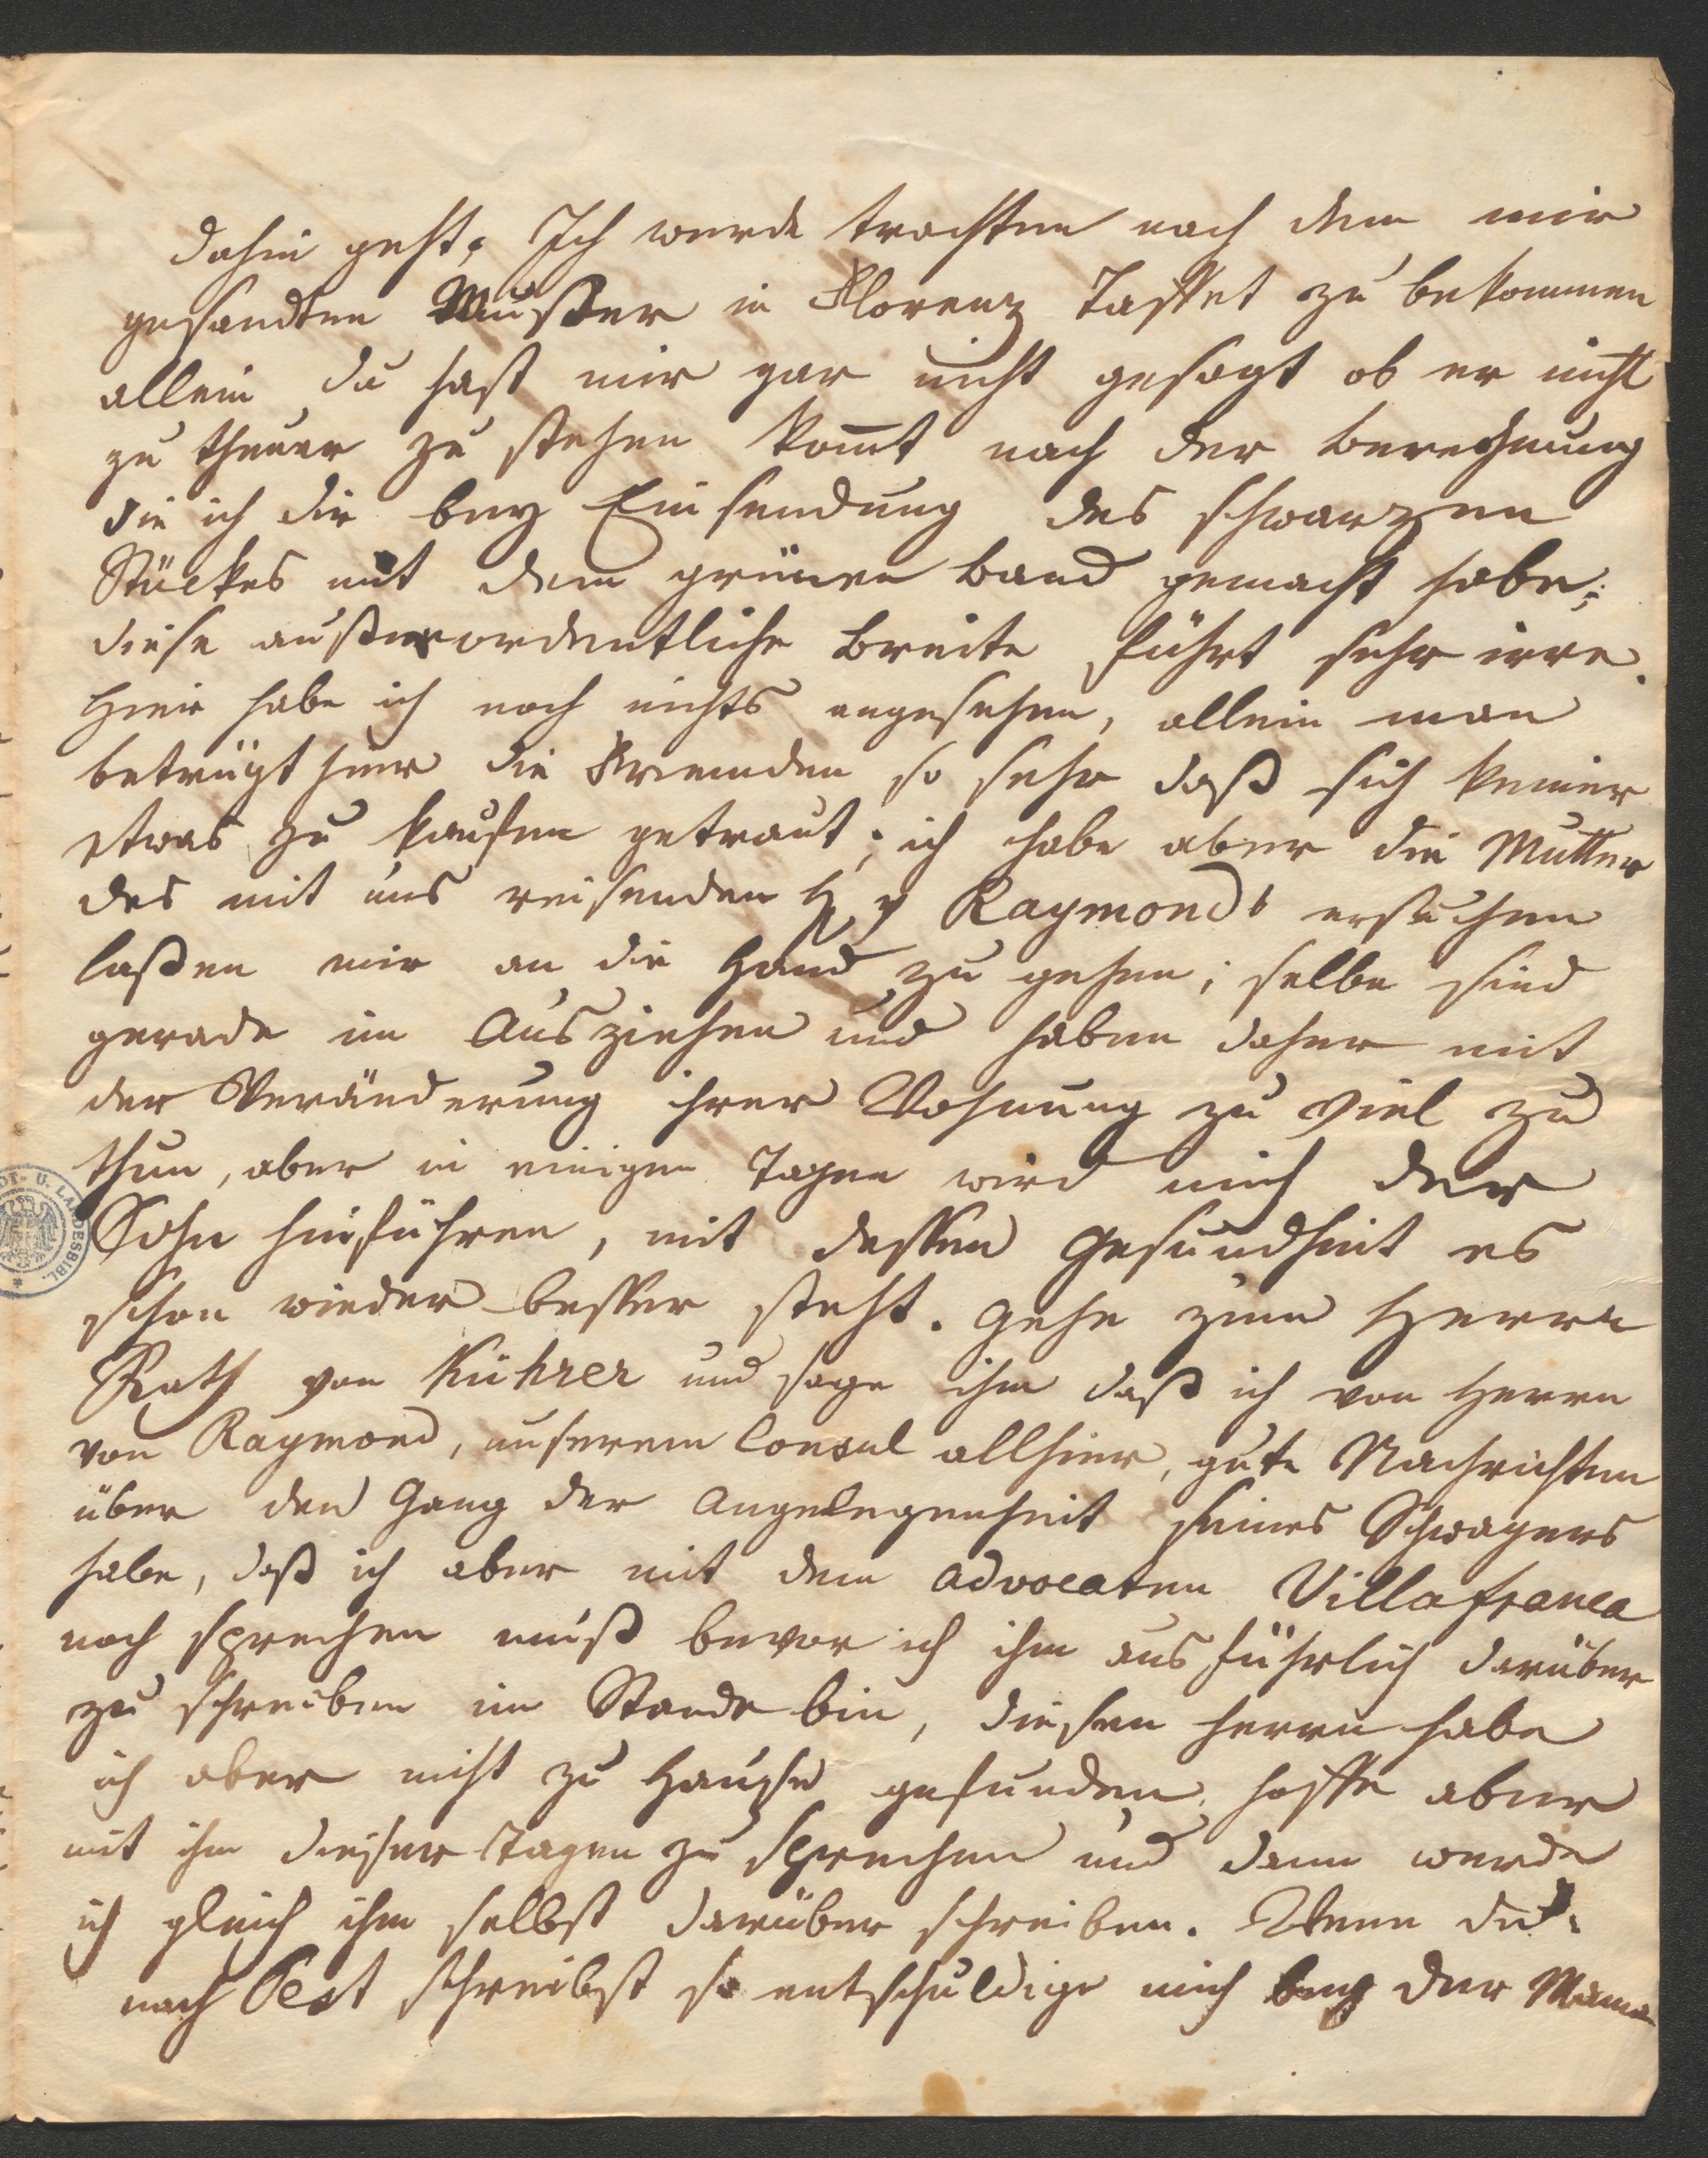 dahin geht. Ich werde trachten nach dem mir
gesandten Mußter in Florenz Taffet zu bekommen
allein du hast mir gar nicht gesagt ob er nicht
zu theuer zu stehen kom̅t nach der Berechnung
die ich dir bey Einsendung des schwarzen
Stückes mit dem grünen Band gemacht habe;
diese außerordentliche Breite führt sehr irre.
Hier habe ich noch nichts angesehen, allein man
betrügt hier die Fremden so sehr daß sich keiner
etwas zu kaufen getraut; ich habe aber die Mutter
des mit uns reisenden H v Raymonds ersuchen
laßen mir an die Hand zu gehen; selbe sind
gerade im Ausziehen und haben daher mit
der Veränderung ihrer Wohnung zu viel zu
thun, aber in einigen Tagen wird mich der
Sohn hinführen, mit dessen Gesundheit es
schon wieder besser steht. Gehe zum Herrn
Rath von Kührer und sage ihm daß ich von Herrn
von Raymond, unserem Consul allhier, gute Nachrichten
über den Gang der Angelegenheit seines Schwagers
habe, daß ich aber mit dem Advocaten Villafranca
noch sprechen muß bevor ich ihm ausführlich darüber
zu schreiben im Stande bin, diesen Herrn habe
ich aber nicht zu Hause gefunden, hoffe aber
mit ihm dieser Tagen zu sprechen und dann werde
ich gleich ihm selbst darüber schreiben. Wenn du
nach Pest schreibst so entschuldige mich bey der Mama
DT- U. LANDESBIBL.